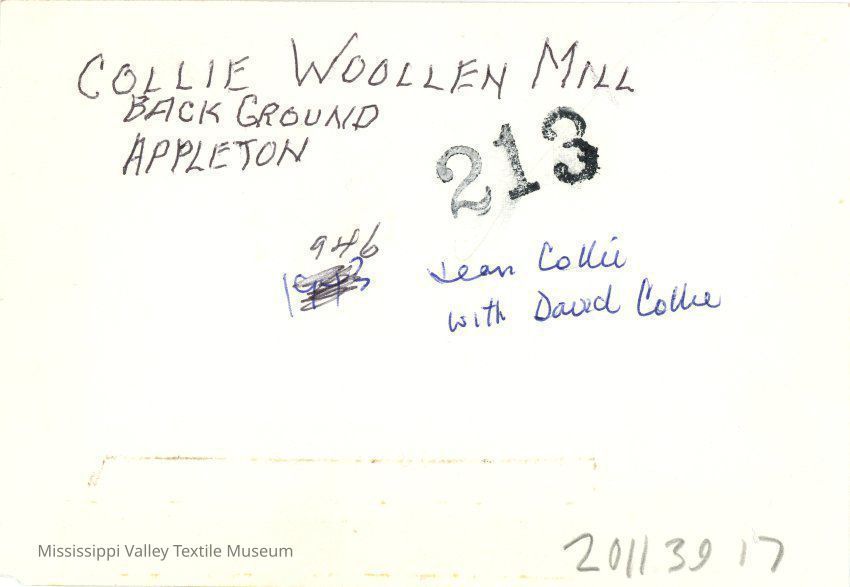 COLLIE WOOLLEN MILL
BACK GROUND
APPLETON
213
946
1943
Jean Collie
with David Collie
Mississippi Valley Textile Museum
2011 39 17